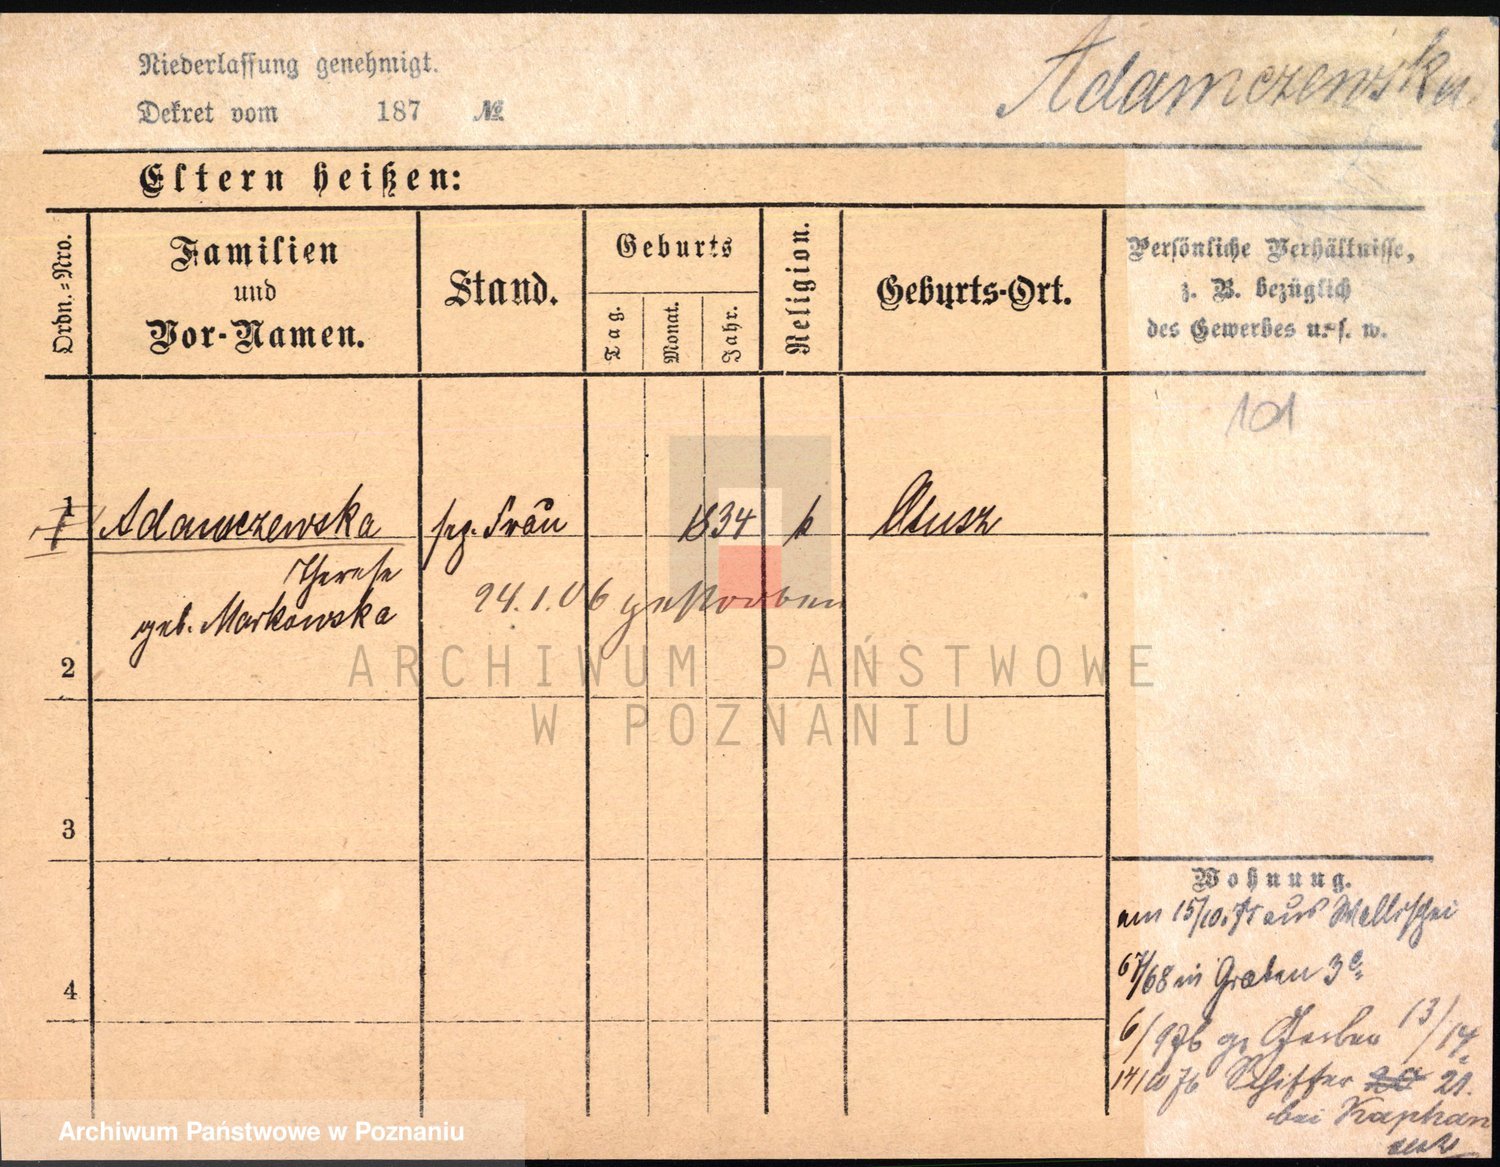 Niederlassung genehmigt.
Dekret vom 187 №
Adamczewska
Eltern heißen:
Ordn.=Nro.
Familien
und
Vor-Namen.
Stand.
Geburts
Tag.
Monat.
Jahr.
Religion.
Geburts-Ort.
Persönliche Verhältnisse,
z. B. bezüglich
des Gewerbes u. s. w.
101
1 Adamczewska Frau 1834 k Otusz
Therese
geb. Markowska
24.1.06 gestorben
2
3
4
Wohnung.
am 15/10.75 aus Wallischei
67/68 in Graben 3
6/9 76 gr Gerber 13/14
14/10 76 Schiffer 20 21.
bei Kaphan
ARCHIWUM PAŃSTWOWE
W POZNANIU
Archiwum Państwowe w Poznaniu